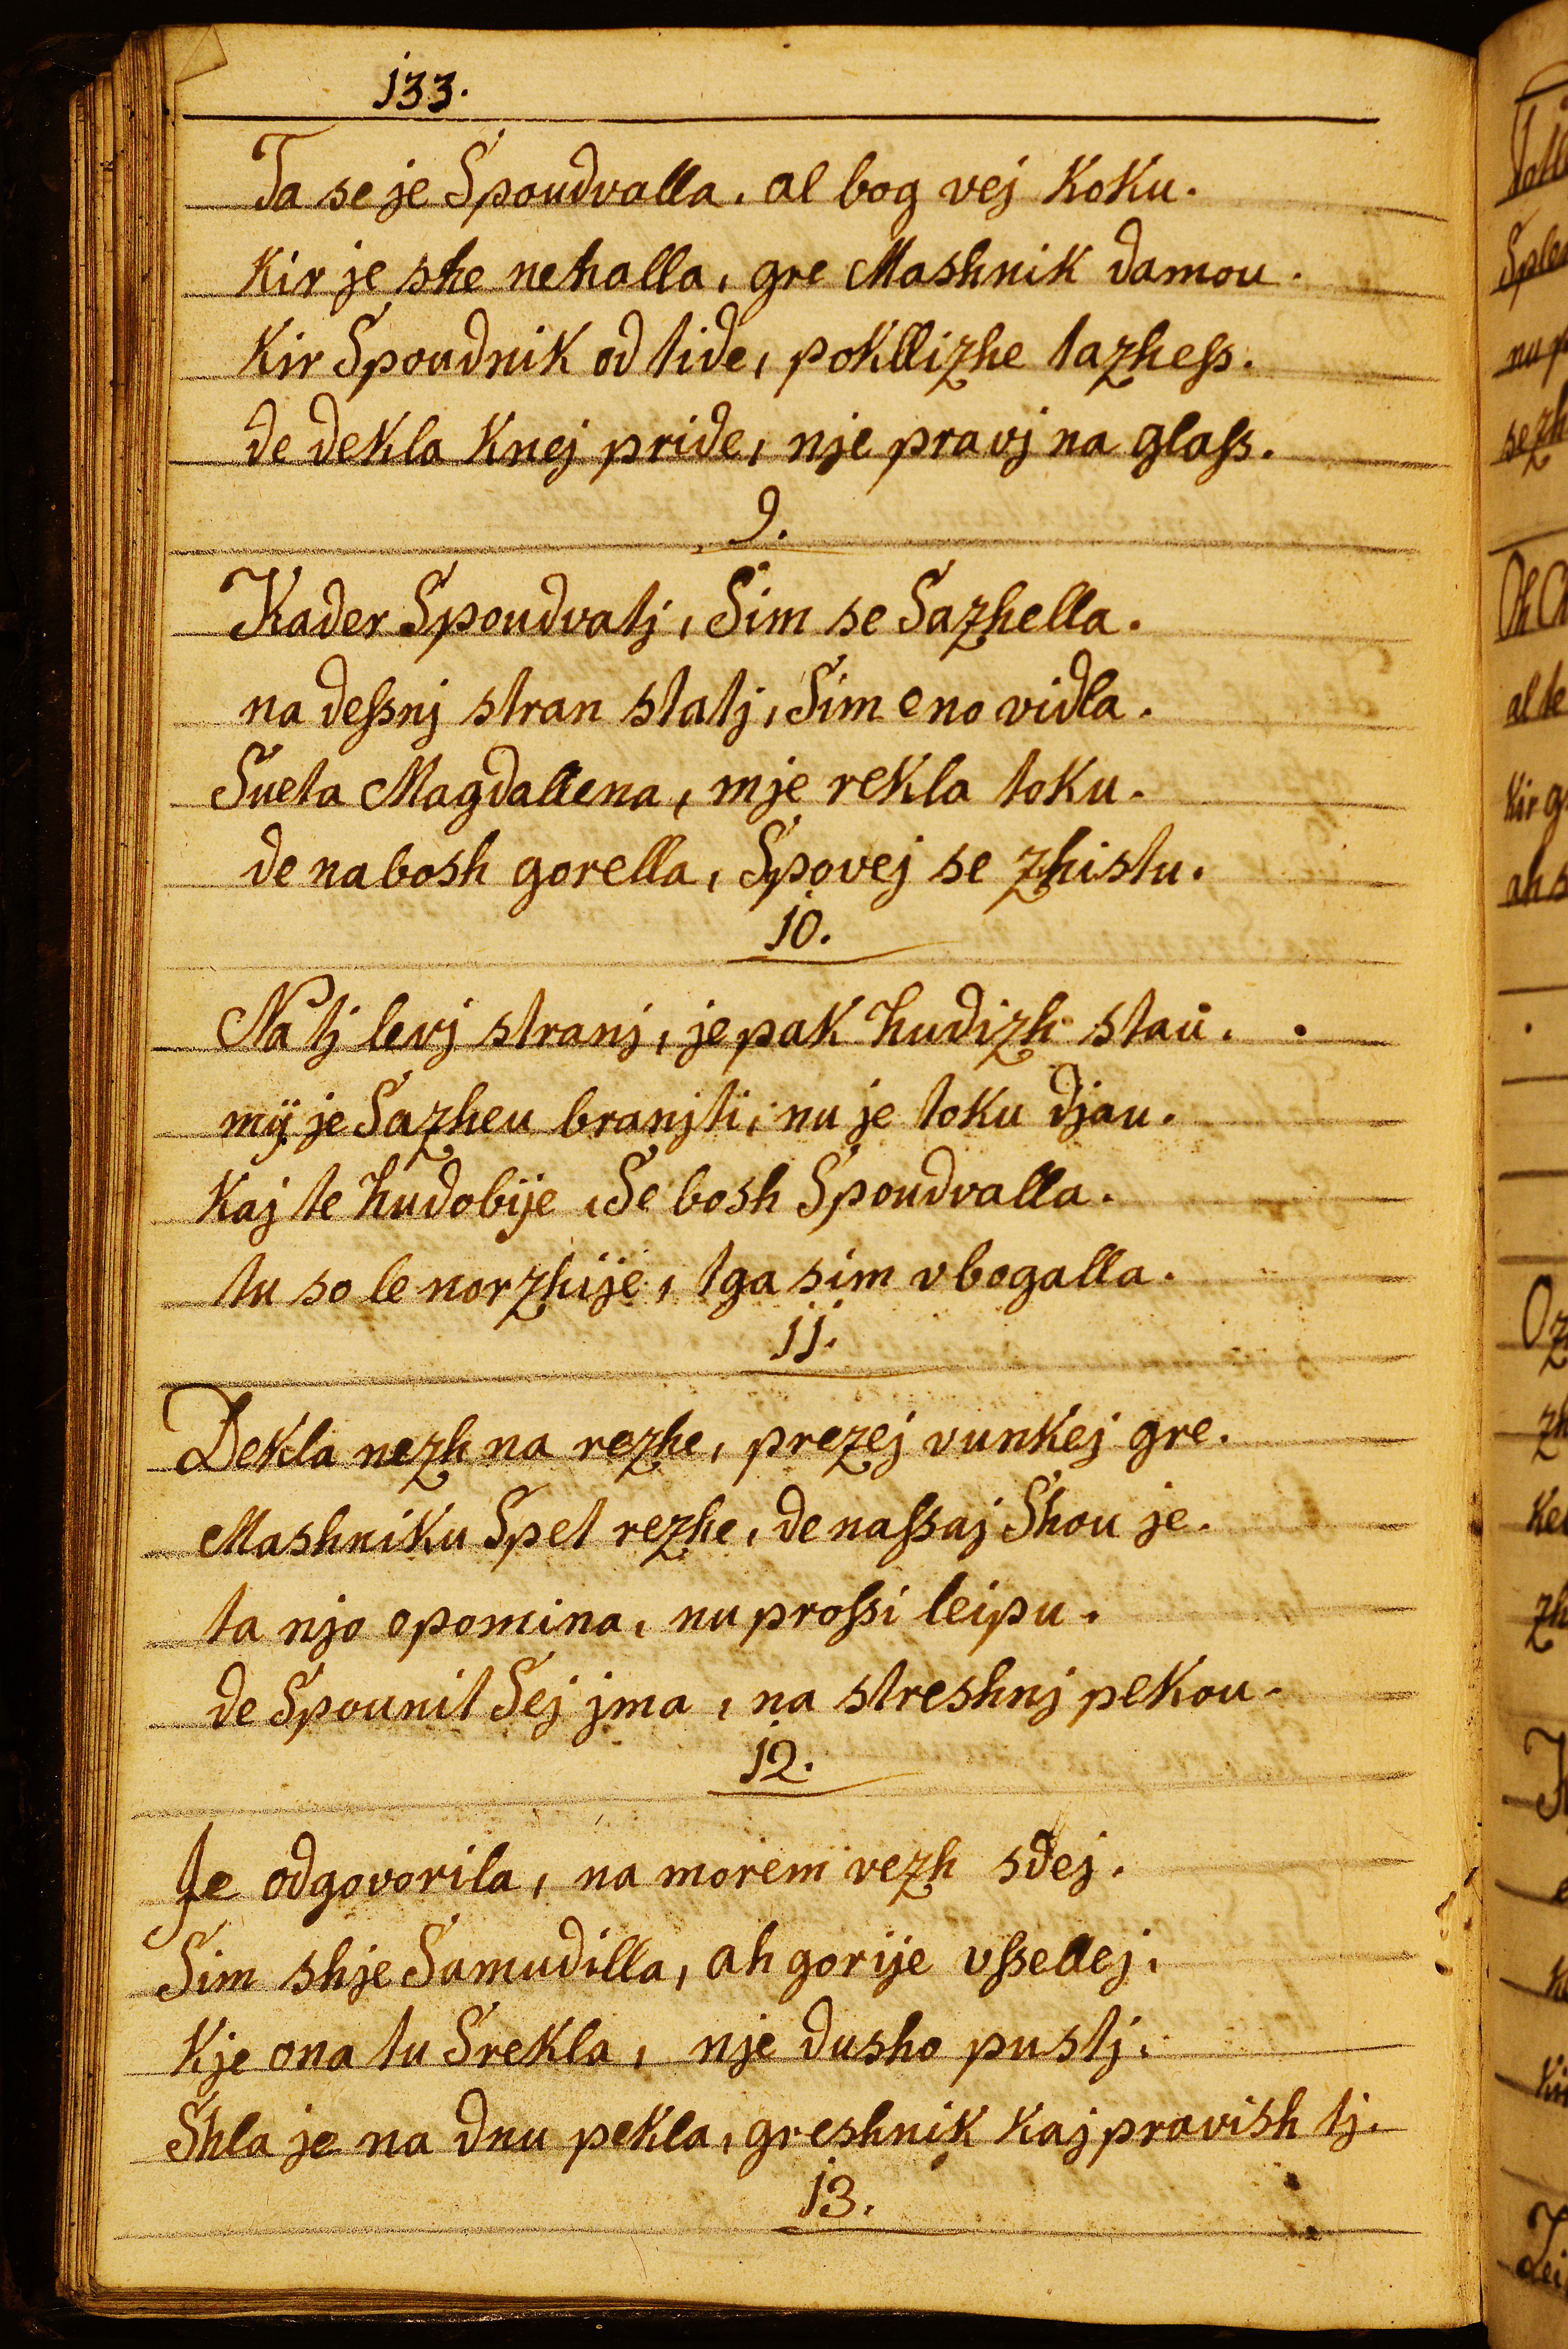 133.
Ta se je Spoudvalla, al bog vej koku.
kir je she nehalla, gre Mashnik damou.
kir Spoudnik od tide, pokllizhe tazheſs.
de dekla knej pride, nje pravj na glaſs.
9.
Kader Spoudvatj, Sim se Sazhella.
na deſsnj stran statj, Sim eno vidla.
Sueta Magdallena, mje rekla toku.
de nabosh gorella, Spovej se zhistu.
10.
Na tj levj stranj, je pak hudizh stau.
mÿ je Sazheu branjti, nu je toku djau.
kaj te hudobije, Se bosh Spoudvalla.
tu so le norzhije, tga sim vbogalla.
11.
Dekla nezh na rezhe, prezej vunkej gre.
Mashniku Spet rezhe, de naſsaj Shou je.
ta njo opomina, nu proſsi leipu.
de Spounit Sej jma, na streshnj pekou.
12.
Je odgovorila, na morem vezh sdej.
Sim shje Samudilla, ah gorije vſsellej.
kje ona tu Srekla, nje dusho pustj.
Shla je na dnu pekla, greshnik kaj pravish tj.
13.